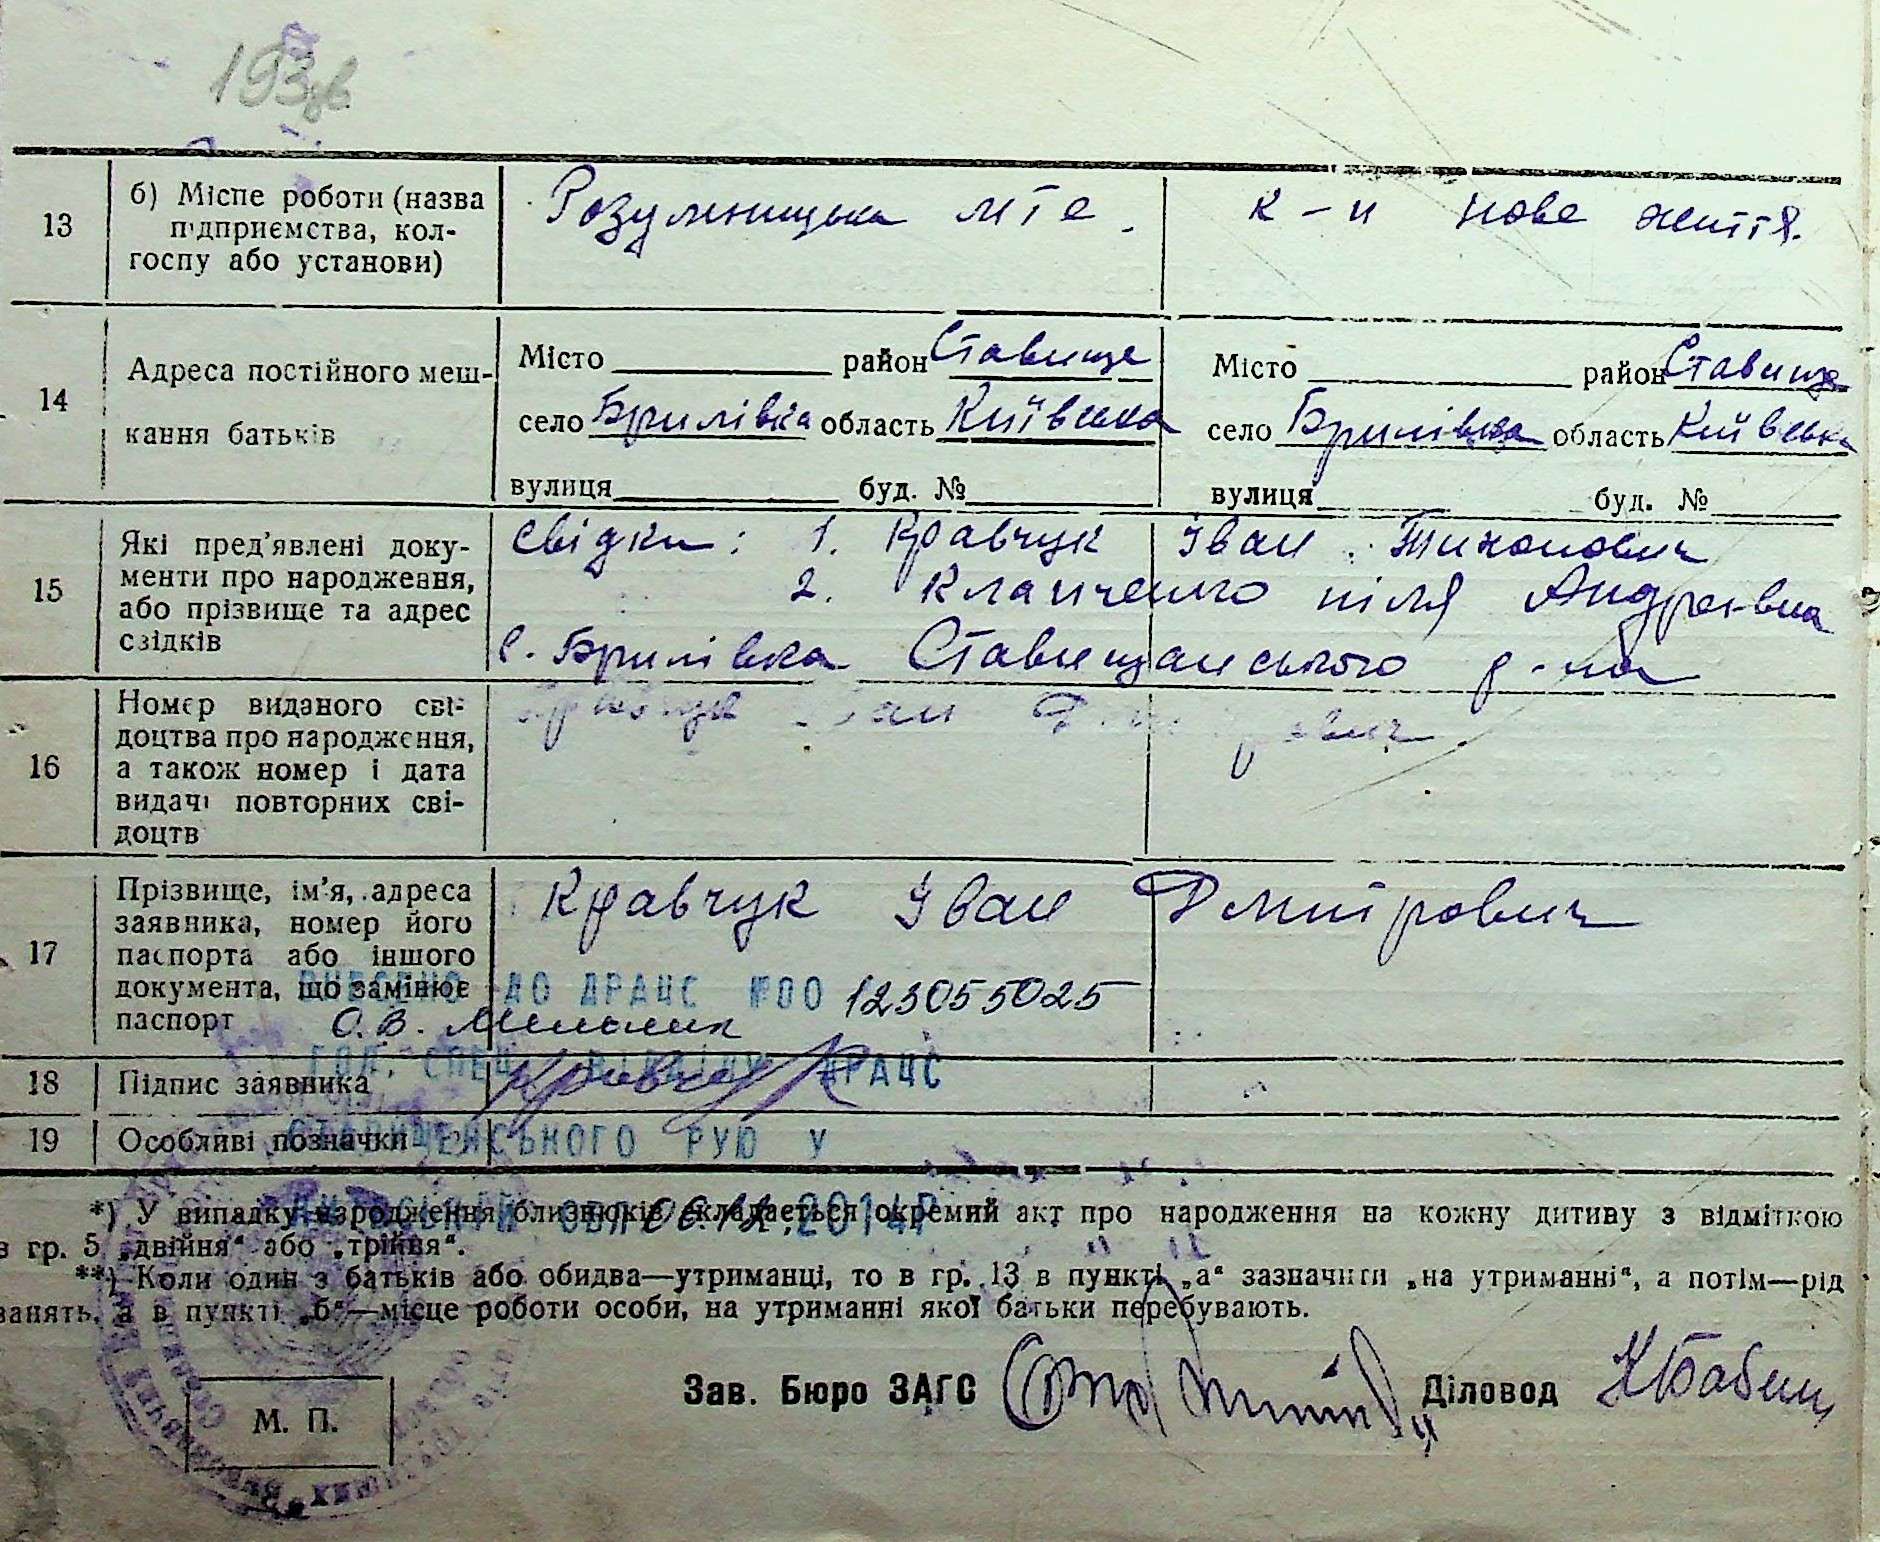 193зв
13 б) Місце роботи (назва підприємства, колгоспу або установи)
Розумницька мтс.
к-п нове життя.
14 Адреса постійного мешкання батьків
Місто район Ставище
село Брилівка область Київська
вулиця буд. №
Місто район Ставище
село Брилівка область Київська
вулиця буд. №
15 Які пред'явлені документи про народження, або прізвище та адрес свідків
Свідки: 1. Кравчук Іван Тихонович
2. Андреєвна
с. Брилівка Ставищанського р-на
16 Номер виданого свідоцтва про народження, а також номер і дата видачі повторних свідоцтв
17 Прізвище, ім'я, адреса заявника, номер його паспорта або іншого документа, що замінює паспорт
Кравчук Іван Дмитрович
ВНЕСЕНО ДО ДРАЦС №00 123055025
О.В.
ГОЛ. СПЕЦ. ВІДДІЛУ ДРАЦС
18 Підпис заявника
Кравчук
19 Особливі позначки
СТАВИЩЕНСЬКОГО РУЮ У
КИЇВСЬКІЙ ОБЛ 06.12.2014Р
*) У випадку народження близнюків складається окремий акт про народження на кожну дитину з відміткою
в гр. 5 „двійня“ або „трійня“.
**) Коли один з батьків або обидва—утриманці, то в гр. 13 в пункті „а“ зазначити „на утриманні“, а потім—рід
занять, а в пункті „б“—місце роботи особи, на утриманні якої батьки перебувають.
Зав. Бюро ЗАГС Діловод
М. П.